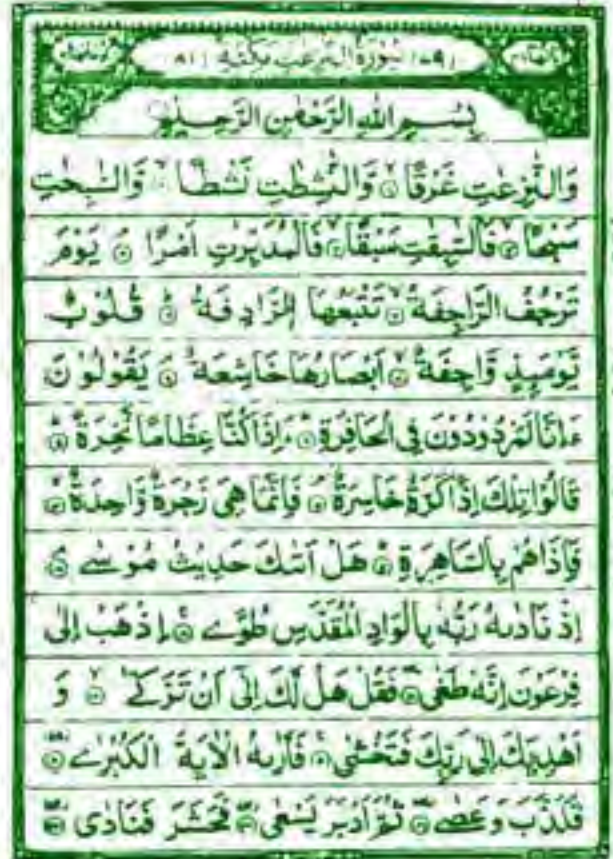 (٧٩) سُوْرَةُ النّٰزِعٰتِ مَكِّيَّةٌ (٨١)
بِسْمِ اللّٰهِ الرَّحْمٰنِ الرَّحِيْمِ
وَالنّٰزِعٰتِ غَرْقًا ۙ وَّالنّٰشِطٰتِ نَشْطًا ۙ وَّالسّٰبِحٰتِ
سَبْحًا ۙ فَالسّٰبِقٰتِ سَبْقًا ۙ فَالْمُدَبِّرٰتِ اَمْرًا ۘ يَوْمَ
تَرْجُفُ الرَّاجِفَةُ ۙ تَتْبَعُهَا الرَّادِفَةُ ؕ قُلُوْبٌ
يَّوْمَىِٕذٍ وَّاجِفَةٌ ۙ اَبْصَارُهَا خَاشِعَةٌ ۘ يَقُوْلُوْنَ
ءَاِنَّا لَمَرْدُوْدُوْنَ فِى الْحَافِرَةِ ؕ ءَاِذَا كُنَّا عِظَامًا نَّخِرَةً ؕ
قَالُوْا تِلْكَ اِذًا كَرَّةٌ خَاسِرَةٌ ۘ فَاِنَّمَا هِىَ زَجْرَةٌ وَّاحِدَةٌ ۙ
فَاِذَا هُمْ بِالسَّاهِرَةِ ؕ هَلْ اَتٰىكَ حَدِيْثُ مُوْسٰى ۘ
اِذْ نَادٰىهُ رَبُّهٗ بِالْوَادِ الْمُقَدَّسِ طُوًى ۚ اِذْهَبْ اِلٰى
فِرْعَوْنَ اِنَّهٗ طَغٰى ۖ فَقُلْ هَلْ لَّكَ اِلٰٓى اَنْ تَزَكّٰى ۙ وَ
اَهْدِيَكَ اِلٰى رَبِّكَ فَتَخْشٰى ۚ فَاَرٰىهُ الْاٰيَةَ الْكُبْرٰى ۖ
فَكَذَّبَ وَعَصٰى ۖ ثُمَّ اَدْبَرَ يَسْعٰى ۖ فَحَشَرَ فَنَادٰى ۖ